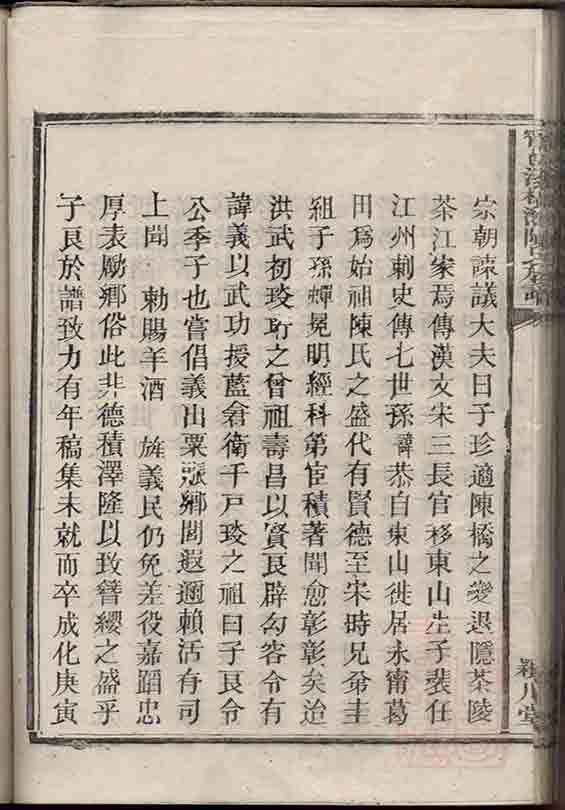 宗朝諫議大夫曰子珍適陳橋之變退隱茶陵
茶江家焉傳漢文宋三長官移東山生子裴任
江州刺史傳七世孫諱恭自東山徙居永甯葛
田爲始祖陳氏之盛代有賢德至宋時兄弟圭
組子孫蟬冕明經科第宦積著聞愈彰彰矣洽
洪武初琰珩之曾祖壽昌以賢良辟勾容令有
諱義以武功授藍倉衛千戸琰之祖曰子良令
公季子也嘗倡義出粟張鄉閭遐邇賴活有司
上聞 勅賜羊酒 旌義民仍免差役嘉蹈忠
厚表勵鄉俗此非德積澤隆以致簪纓之盛乎
子良於譜致力有年稿集未就而卒成化庚寅
潁川堂